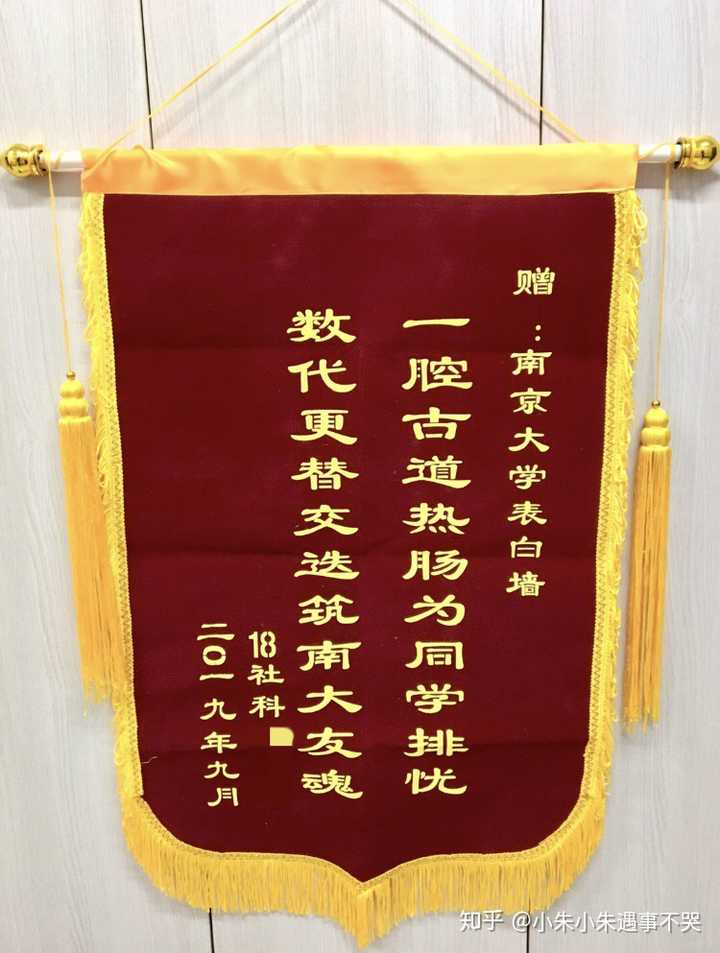 赠：南京大学表白墙
一腔古道热肠为同学排忧
数代更替交迭筑南大友魂
18社科
二〇一九年九月
知乎 @小朱小朱遇事不哭